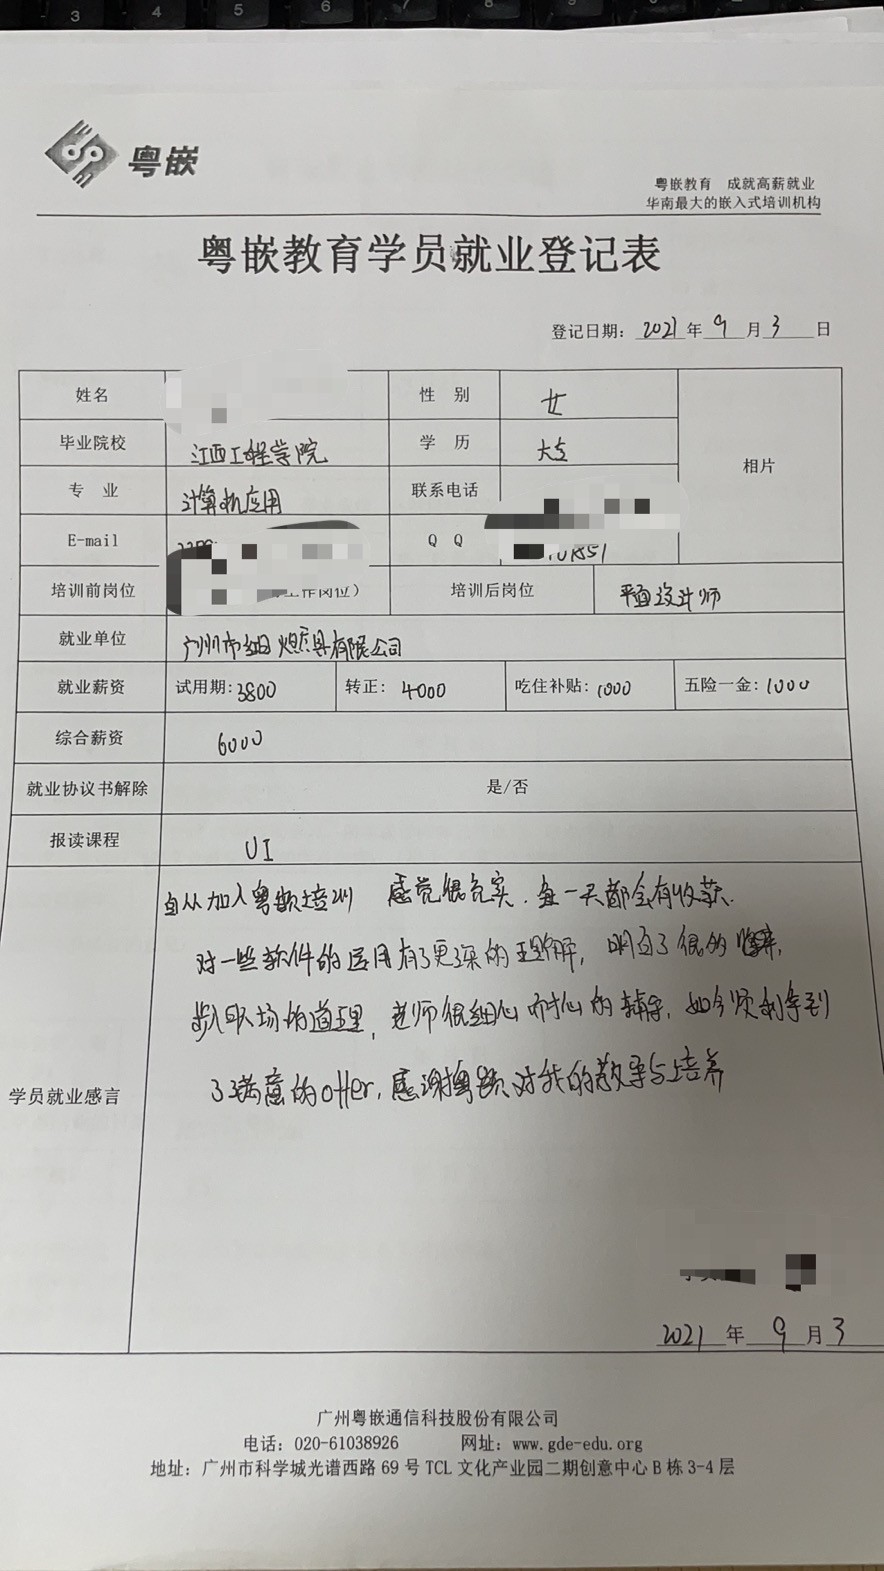 粤嵌
粤嵌教育 成就高薪就业
华南最大的嵌入式培训机构
粤嵌教育学员就业登记表
登记日期: 2021 年 9 月 3 日
姓名 性 别 女 相片
毕业院校 江西工程学院 学 历 大专
专 业 计算机应用 联系电话
E-mail Q Q
培训前岗位 工作岗位） 培训后岗位 平面设计师
就业单位 广州市 具有限公司
就业薪资 试用期:3800 转正: 4000 吃住补贴:1000 五险一金:1000
综合薪资 6000
就业协议书解除 是/否
报读课程 UI
自从加入粤嵌培训 感觉很充实.每一天都会有收获.
对一些软件的运用有了更深的理解, 明白了很多
步入职场的道理, 老师很细心耐心的辅导, 如今顺利拿到
了满意的offer, 感谢粤嵌对我的教导与培养
学员就业感言
2021 年 9 月 3
广州粤嵌通信科技股份有限公司
电话: 020-61038926 网址: www.gde-edu.org
地址: 广州市科学城光谱西路 69 号 TCL 文化产业园二期创意中心 B 栋 3-4 层